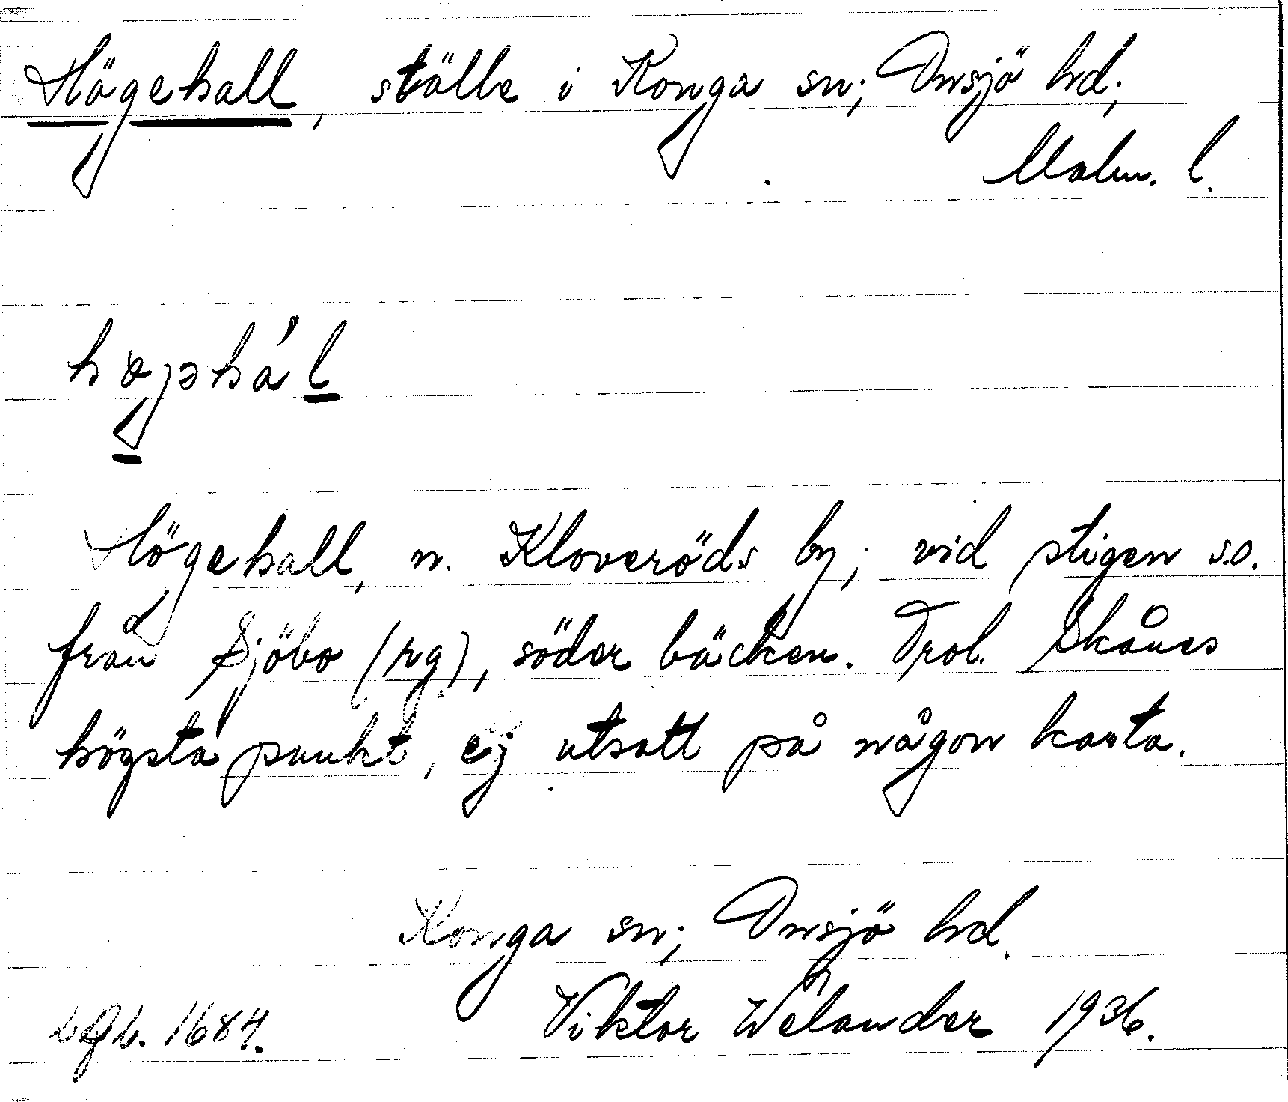 Högehall, ställe i Konga sn; Onsjö hd;
Malm. l.
Högehall, n. Kloveröds by; vid stigen s.o.
från Sjöbo (rg), söder bäcken. Trol. Skånes
högsta punkt, ej utsatt på någon karta.
Konga sn; Onsjö hd.
1684. Viktor Welander 1936.